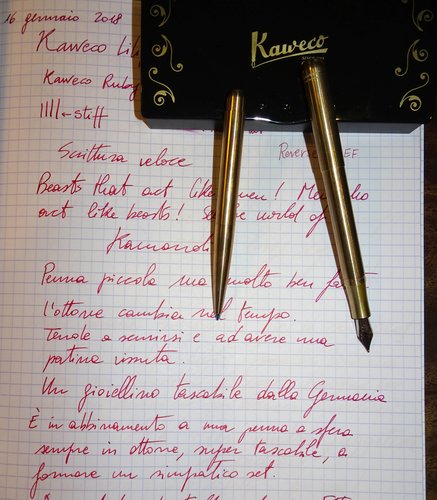 16 gennaio 2018
Kaweco Lili
Kaweco Ruby
Kaweco
||||← stiff
Scrittura veloce
Reverse EF
Beasts that act like men! Men who
act like beasts! world of
Kamandi
Penna piccola ma molto ben fatta.
L'ottone cambia nel tempo.
Tende a scurirsi e ad avere una
patina vissuta.
Un gioiellino tascabile dalla Germania
È in abbinamento a una penna a sfera
sempre in ottone, super tascabile, a
formare un simpatico set.